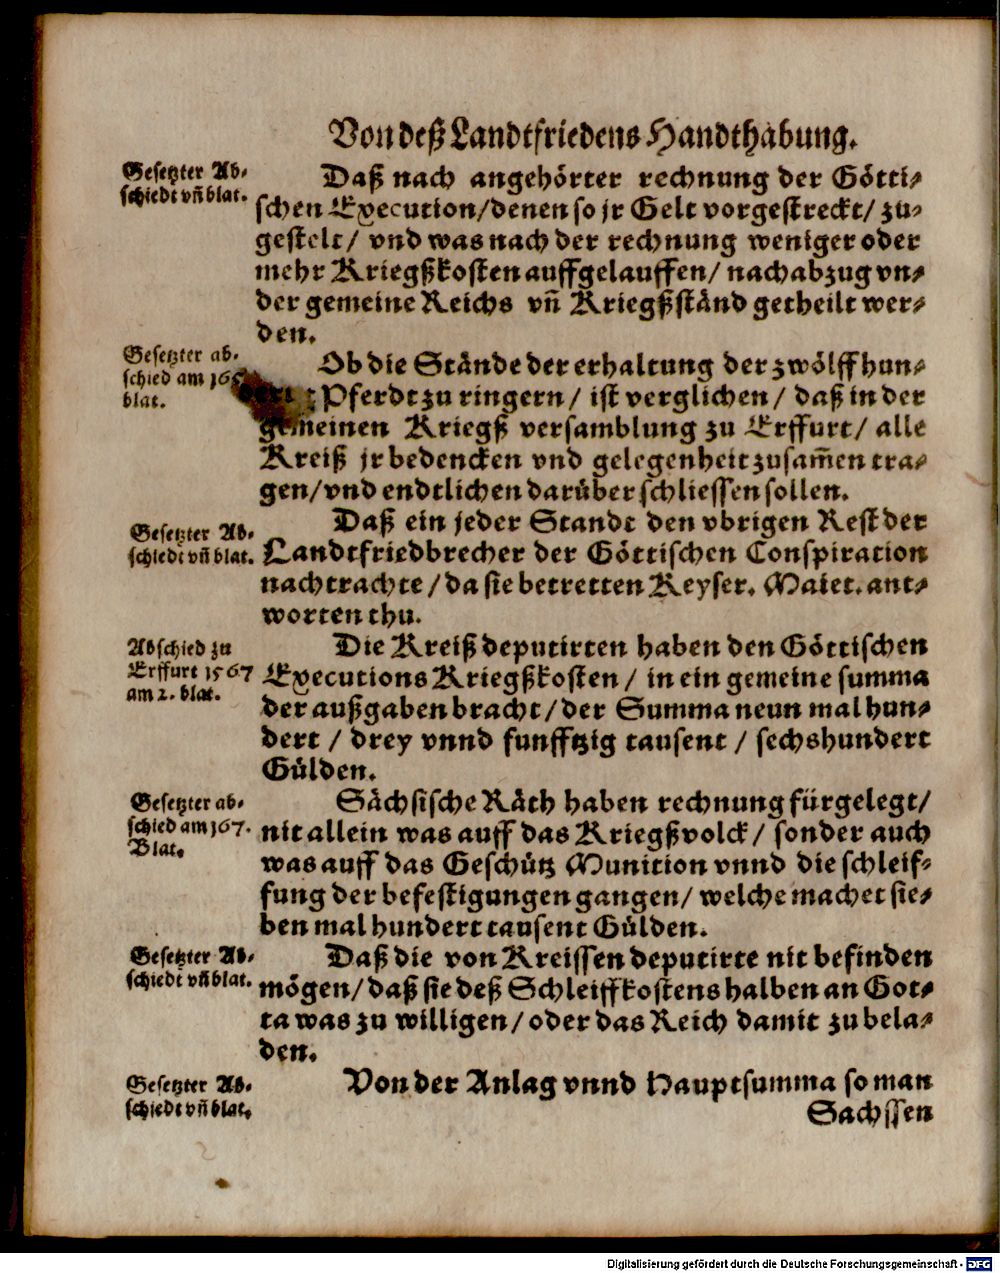 Von deß Landtfriedens Handthabung.
Gesetzter Ab-
schiedt vñ blat.
Daß nach angehörter rechnung der Götti-
schen Execution/denen so jr Gelt vorgestreckt/ zu-
gestelt/ vnd was nach der rechnung weniger oder
mehr Kriegßkosten auffgelauffen/ nach abzug vn-
der gemeine Reichs vñ Kriegßständ getheilt wer-
den.
Gesetzter ab-
schied am
blat.
Ob die Stände der erhaltung der zwölff hun-
dert Pferdt zu ringern/ ist verglichen/ daß in der
gemeinen Kriegß versamblung zu Erffurt/ alle
Kreiß jr bedencken vnd gelegenheit zusam̃en tra-
gen/vnd endtlichen darüber schliessen sollen.
Gesetzter Ab-
schiedt vñ blat.
Daß ein jeder Standt den vbrigen Rest der
Landtfriedbrecher der Göttischen Conspiration
nachtrachte/da sie betretten Keyser. Maiet. ant-
worten thu.
Abschied zu
Erffurt 1567
am 2. blat.
Die Kreiß deputirten haben den Göttischen
Executions Kriegßkosten/ in ein gemeine summa
der außgaben bracht/der Summa neun mal hun-
dert / drey vnnd funfftzig tausent / sechshundert
Gülden.
Gesetzter ab-
schied am 167.
Blat.
Sächsische Räth haben rechnung fürgelegt/
nit allein was auff das Kriegßvolck/ sonder auch
was auff das Geschütz Munition vnnd die schleif-
fung der befestigungen gangen/ welche machet sie-
ben mal hundert tausent Gülden.
Gesetzter Ab-
schiedt vñ blat.
Daß die von Kreissen deputirte nit befinden
mögen/daß sie deß Schleiffkostens halben an Got-
ta was zu willigen/oder das Reich damit zu bela-
den.
Gesetzter Ab-
schiedt vñ blat.
Von der Anlag vnnd Hauptsumma so man
Sachssen
Digitalisierung gefördert durch die Deutsche Forschungsgemeinschaft - DFG